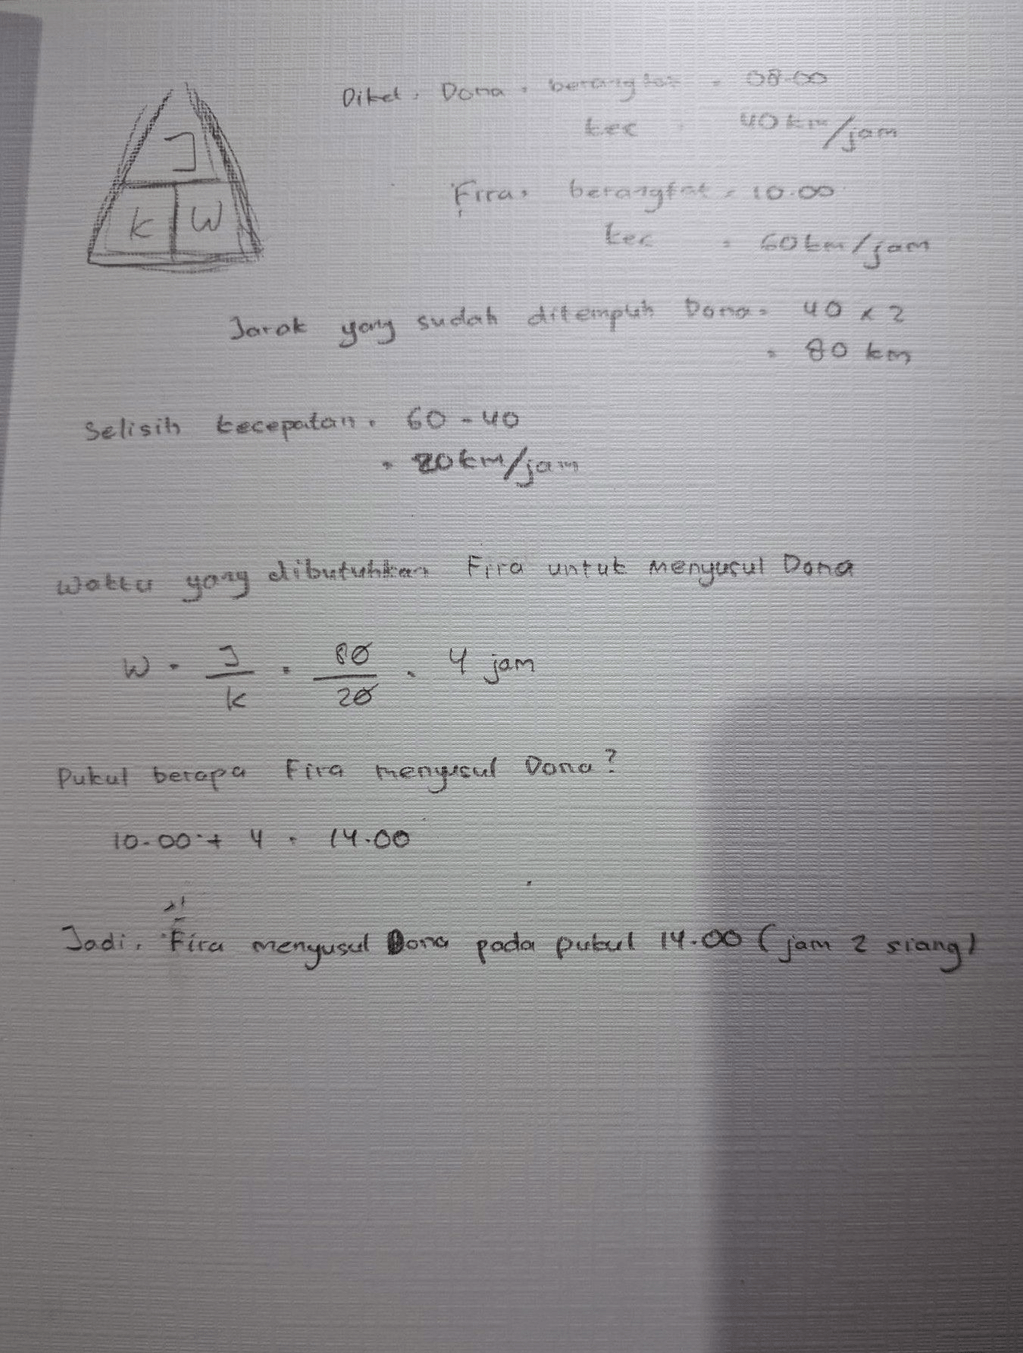 J
K W
Diket. Dona = berangkat = 08.00
kec = 40 km/jam
Fira = berangkat = 10.00
kec = 60 km/jam
Jarak yang sudah ditempuh Dona = 40 x 2
= 80 km
Selisih kecepatan = 60 - 40
= 20 km/jam
Waktu yang dibutuhkan Fira untuk menyusul Dona
W = J/K = 80/20 = 4 jam
Pukul berapa Fira menyusul Dona?
10.00 + 4 = 14.00
Jadi, Fira menyusul Dona pada pukul 14.00 (jam 2 siang)